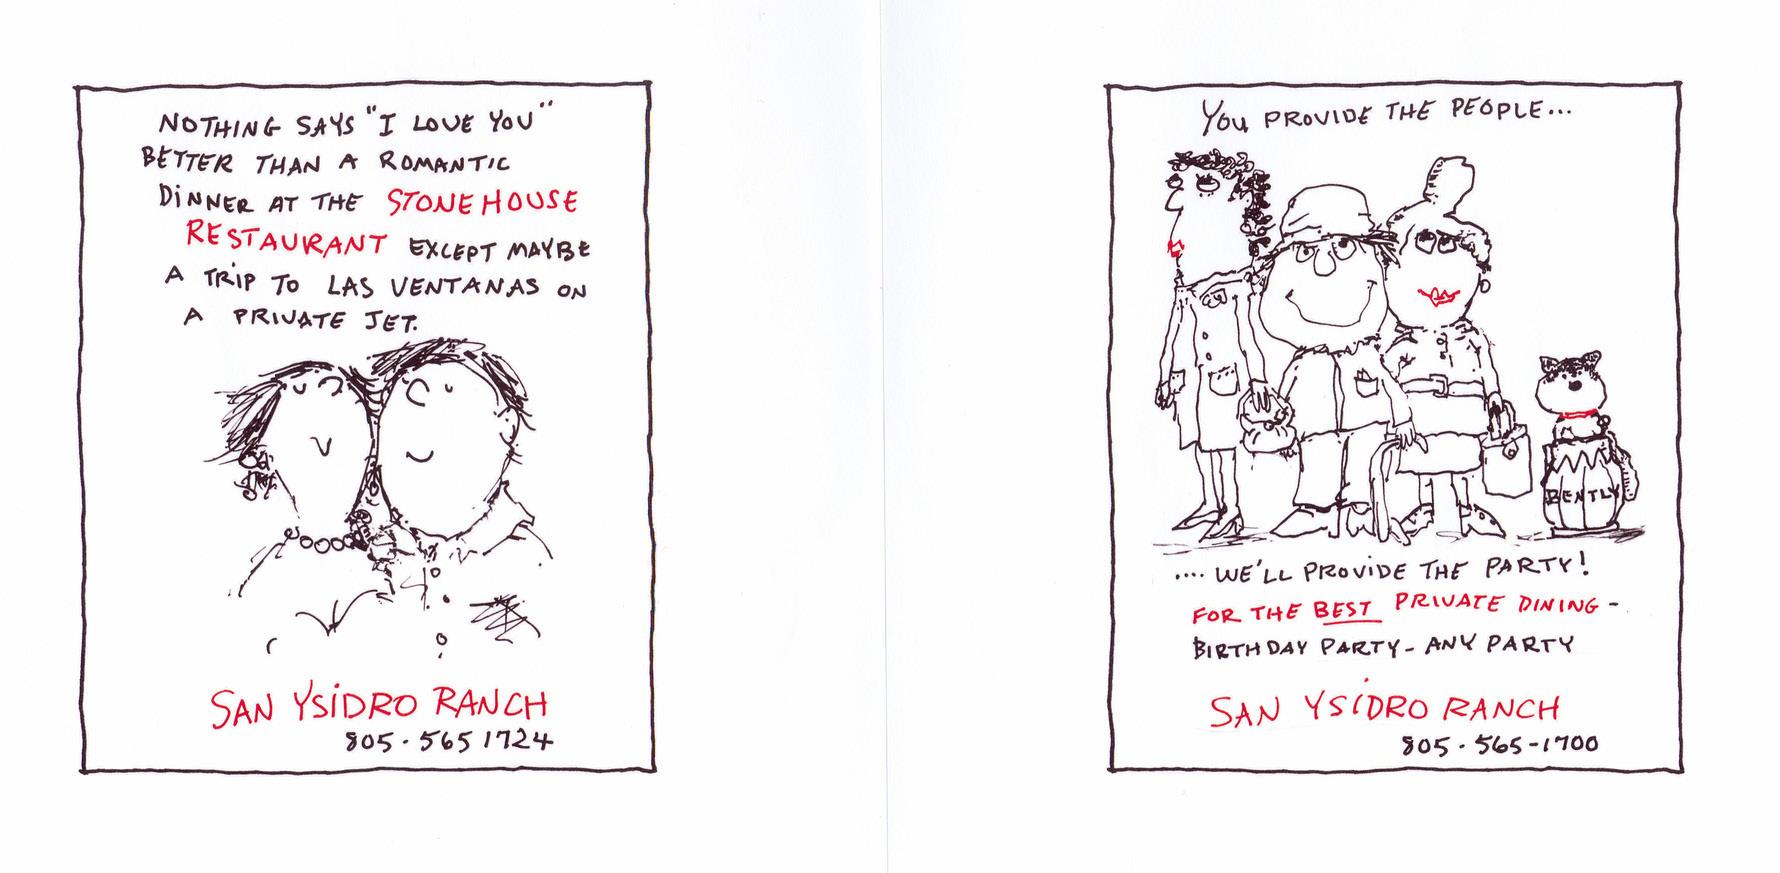 NOTHING SAYS "I LOVE YOU"
BETTER THAN A ROMANTIC
DINNER AT THE STONEHOUSE
RESTAURANT EXCEPT MAYBE
A TRIP TO LAS VENTANAS ON
A PRIVATE JET.
SAN YSIDRO RANCH
805·565 1724
YOU PROVIDE THE PEOPLE...
BENTLY
....WE'LL PROVIDE THE PARTY!
FOR THE BEST PRIVATE DINING-
BIRTHDAY PARTY-ANY PARTY
SAN YSIDRO RANCH
805·565-1700